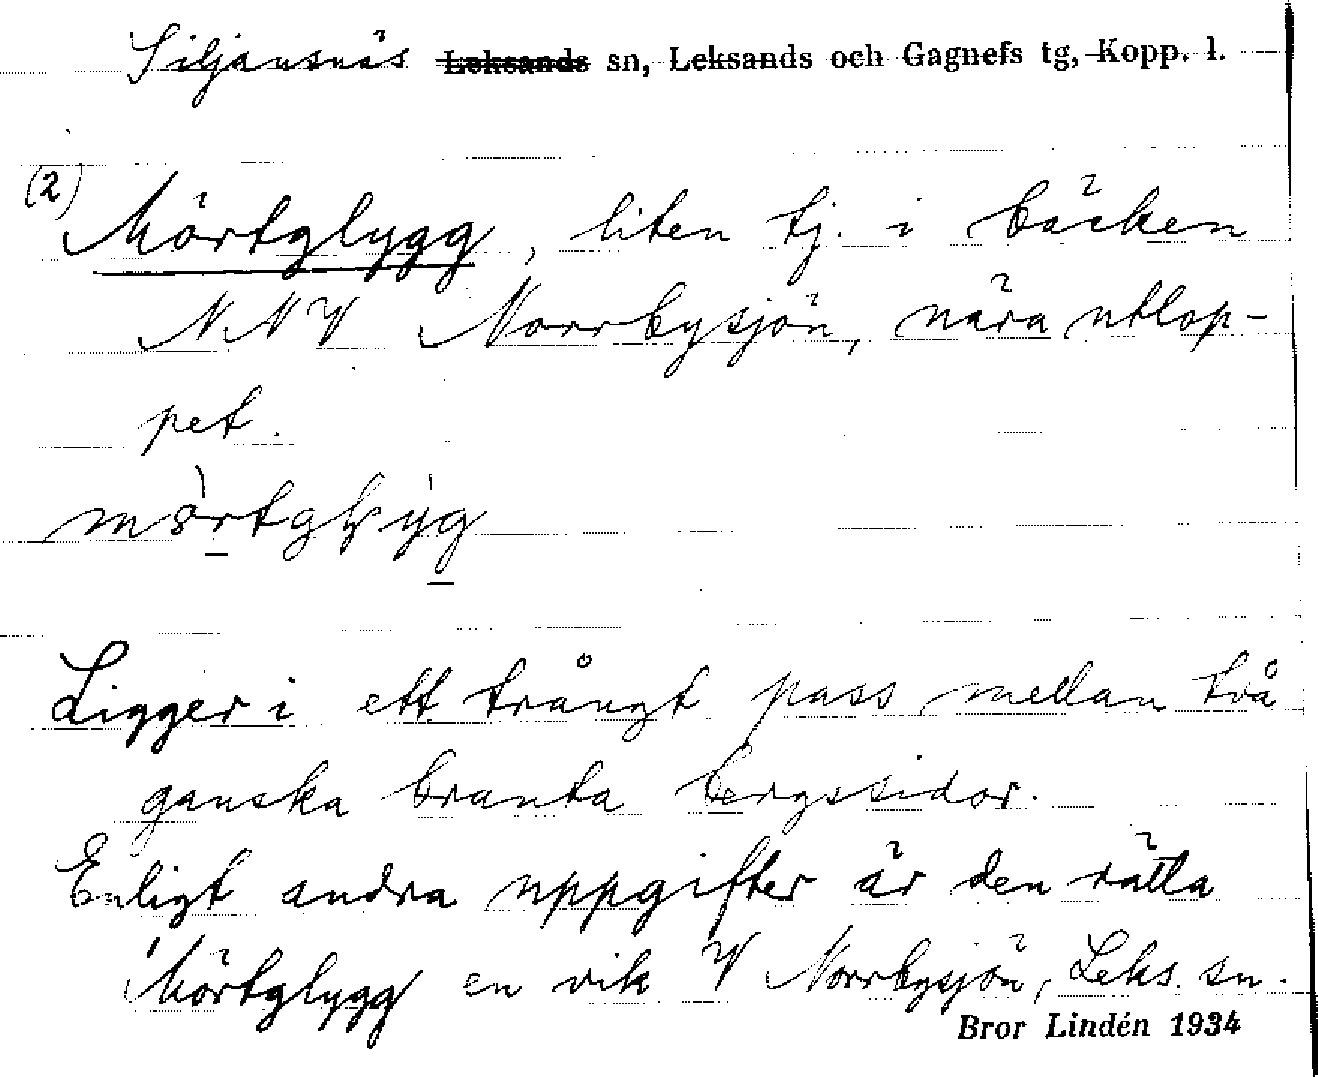 Siljansnäs Leksands sn, Leksands och Gagnefs tg, Kopp. l.
(2) Mörtglygg, liten tj. i bäcken
NNV Norrbysjön, nära utlop-
pet.
Ligger i ett trångt pass mellan två
ganska branta bergssidor.
Enligt andra uppgifter är den rätta
Mörtglygg en vik V Norrbysjön, Leks. sn.
Bror Lindén 1934